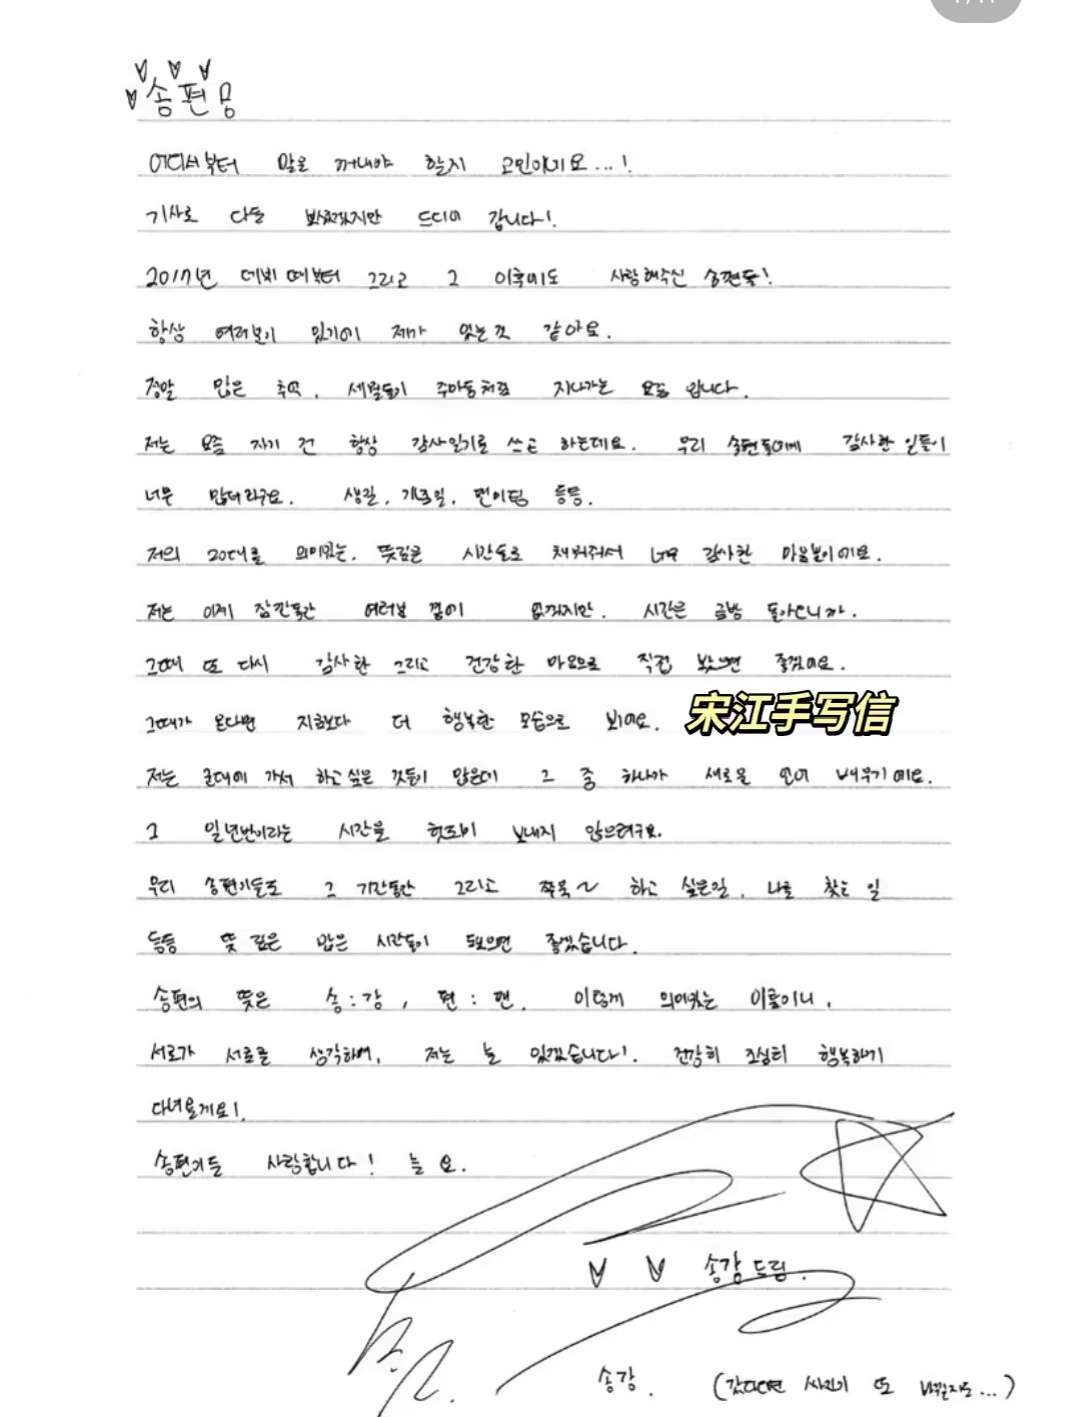 송편 몽
어디서부터 말을 꺼내야 할지 고민이네요...!
기사로 다들 보셨겠지만 드디어 갑니다!
2017년 데뷔 때부터 그리고 그 이후에도 사랑해주신 송편들!
항상 여러분이 있기에 제가 있는 것 같아요.
정말 많은 추억, 세월들이 주마등처럼 지나가는 요즘 입니다.
저는 요즘 자기 전 항상 감사일기를 쓰곤 하는데요. 우리 송편들에게 감사한 일들이
너무 많더라구요. 생일, 기념일, 팬미팅 등등.
저의 20대를 의미있는, 뜻깊은 시간들로 채워줘서 너무 감사한 마음뿐이에요.
저는 이제 잠깐동안 여러분 곁에 없겠지만, 시간은 금방 돌아오니까.
그때 또 다시 감사한 그리고 건강한 마음으로 직접 봤으면 좋겠어요.
그때가 온다면 지금보다 더 행복한 모습으로 봐요.
宋江手写信
저는 군대에 가서 하고싶은 것들이 많은데 그 중 하나가 새로운 언어 배우기에요.
그 일년반이라는 시간을 헛되이 보내지 않으려구요.
우리 송편이들도 그 기간동안 그리고 쭈욱~ 하고 싶은일, 나를 찾는 일
등등 뜻 깊은 많은 시간들이 되었으면 좋겠습니다.
송편의 뜻은 송:강, 편:팬. 이렇게 의미있는 이름이니,
서로가 서로를 생각하며, 저는 늘 있겠습니다!. 건강히 조심히 행복하게
다녀올게요!.
송편이들 사랑합니다! 늘 요.
송강드림.
송강. (갔다오면 싸인이 또 바뀔지도...)